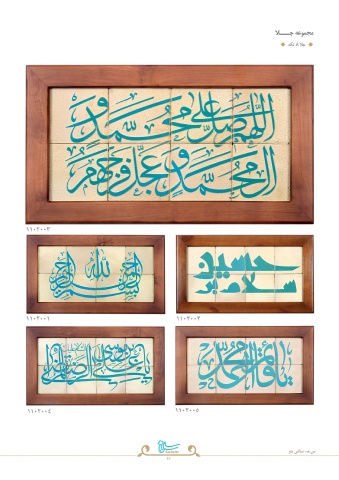 مجموعه جلا
اللهم صل علی محمد و
آل محمد و عجل فرجهم
۱۱۰۲۰۰۳
بسم الله الرحمن الرحیم
حسین
سلام بر
۱۱۰۲۰۰۱
۱۱۰۲۰۰۲
یا علی بن موسی الرضا
یا قائم آل محمد
۱۱۰۲۰۰۴
۱۱۰۲۰۰۵